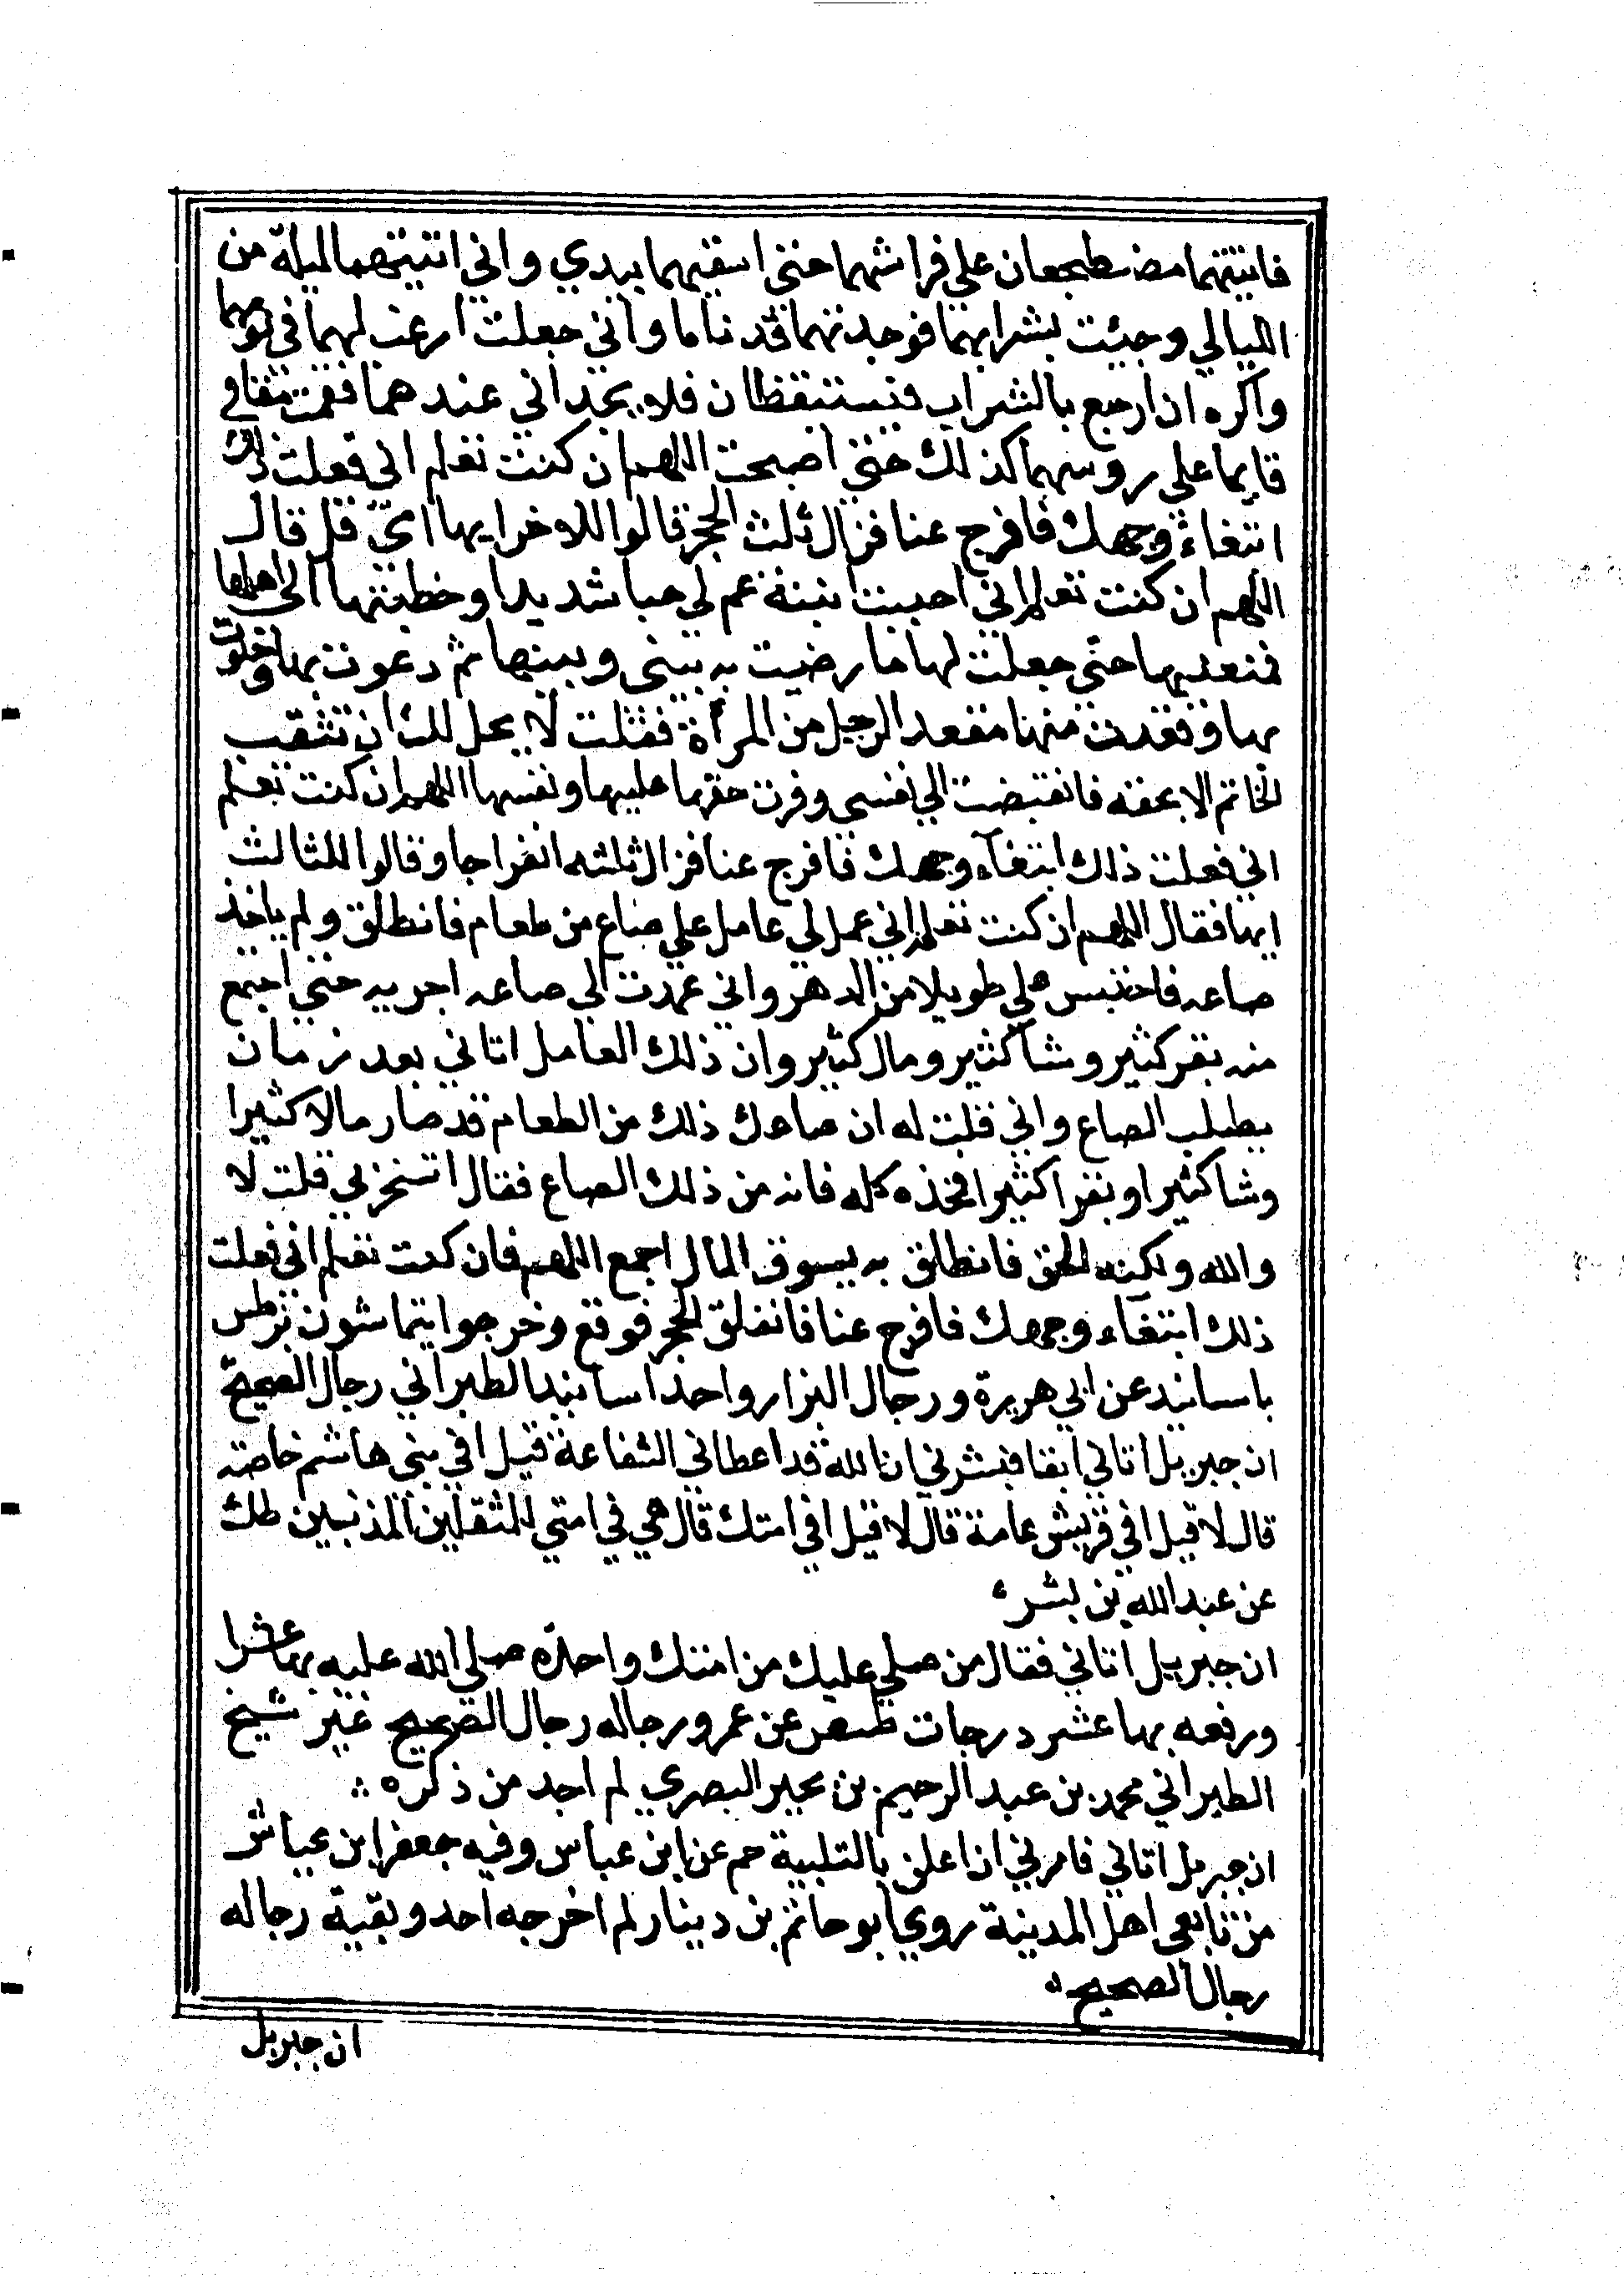 فاتيتهما مضطجعان علي فراشهما حتي اسقيهما بيدي واني اتيتهما ليلة من
الليالي وجيئت بشرابهما فوجدتهما قد ناما واني جعلت ارغب لهما في نومهما
واكره ان ارجع بالشراب فيستيقظان فلا يجداني عندهما فقمت مقامي
قايما علي روسهما كذلك حتي اصبحت اللهم ان كنت تعلم اني فعلت ذلك
ابتغاء وجهك فافرج عنا فزال ثلث الحجر قالوا للاخر ايها اي قل قال
اللهم ان كنت تعلم اني احببت ابنة عم لي حبا شديدا وخطبتها الي اهلها
فمنعنيها حتي جعلت لها ما رضيت به بيني وبينها ثم دعوت بها وخلوت
بها وقعدت منها مقعد الرجل من المرأة فقلت لا يحل لك ان تثقب
الخاتم الا بحقه فانقبضت الي نفسي وفرت حقها عليها ونفسها اللهم ان كنت تعلم
اني فعلت ذلك ابتغآء وجهك فافرج عنا فزال ثلثه انفراجا وقالوا للثالث
ايها فقال اللهم ان كنت تعلم اني عمل لي عامل علي صاع من طعام فانطلق ولم ياخذ
صاعه فاحتبس علي طويلا من الدهر واني عمدت الي صاعه اجر به حتي اجتمع
منه بقر كثير وشا كثير ومال كثير وان ذلك العامل اتاني بعد زمان
يطلب الصاع واني قلت له ان صاعك ذلك من الطعام قد صار مالا كثيرا
وشا كثيرا وبقرا كثيرا فخذه كله فانه من ذلك الصاع فقال اتسخر بي قلت لا
والله ولكنه الحق فانطلق به يسوق المال اجمع اللهم فان كنت تعلم اني فعلت
ذلك ابتغاء وجهك فافرج عنا فانفلق الحجر فوقع وخرجوا يتماشون بز طس
باسانيد عن ابي هريرة ورجال البزار واحد اسانيد الطبراني رجال الصحيح
ان جبريل اتاني انفا فبشرني ان الله قد اعطاني الشفاعة قيل افي بني هاشم خاصة
قال لا قيل افي قريش عامة قال لا قيل افي امتك قال هي في امتي للمثقلين المذنبين طك
عن عبد الله بن بشر
ان جبريل اتاني فقال من صلي عليك من امتك واحدة صلي الله عليه بها عشرا
ورفعه بها عشر درجات طسص عن عمر ورجاله رجال الصحيح غير شيخ
الطبراني محمد بن عبد الرحيم بن بحير البصري لم اجد من ذكره
ان جبريل اتاني فامرني ان اعلن بالتلبية حم عن ابن عباس وفيه جعفر ابن عياش
من تابعي اهل المدينة روي ابو حاتم بن دينار لم اخرجه احد وبقية رجاله
رجال الصحيح
ان جبريل